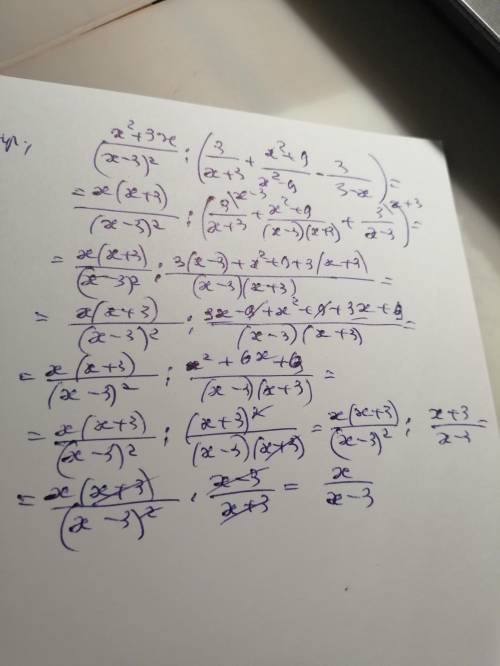 пр;
(x²+3x)/(x-3)² : (3/(x+3) + (x²+9)/(x²-9) - 3/(3-x)) =
= x(x+3)/(x-3)² : (3^(x-3)/(x+3) + (x²+9)/((x-3)(x+3)) + 3^(x+3)/(x-3)) =
= x(x+3)/(x-3)² : (3(x-3)+x²+9+3(x+3))/((x-3)(x+3)) =
= x(x+3)/(x-3)² : (3x-9+x²+9+3x+9)/((x-3)(x+3)) =
= x(x+3)/(x-3)² : (x²+6x+9)/((x-3)(x+3)) =
= x(x+3)/(x-3)² : (x+3)²/((x-3)(x+3)) = x(x+3)/(x-3)² : (x+3)/(x-3)
= x(x+3)/(x-3)² · (x-3)/(x+3) = x/(x-3)